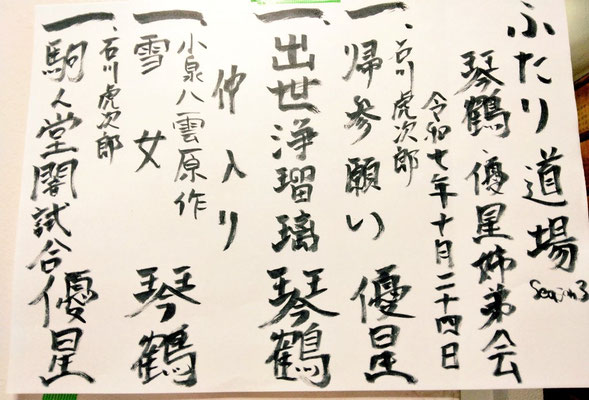 ふたり道場 Season3
琴鶴、優星姉弟会
令和七年十月二十四日
石川虎次郎
一、帰参願い 優星
一、出世浄瑠璃 琴鶴
仲入り
小泉八雲原作
一、雪女 琴鶴
石川虎次郎
一、駒人堂闇試合 優星